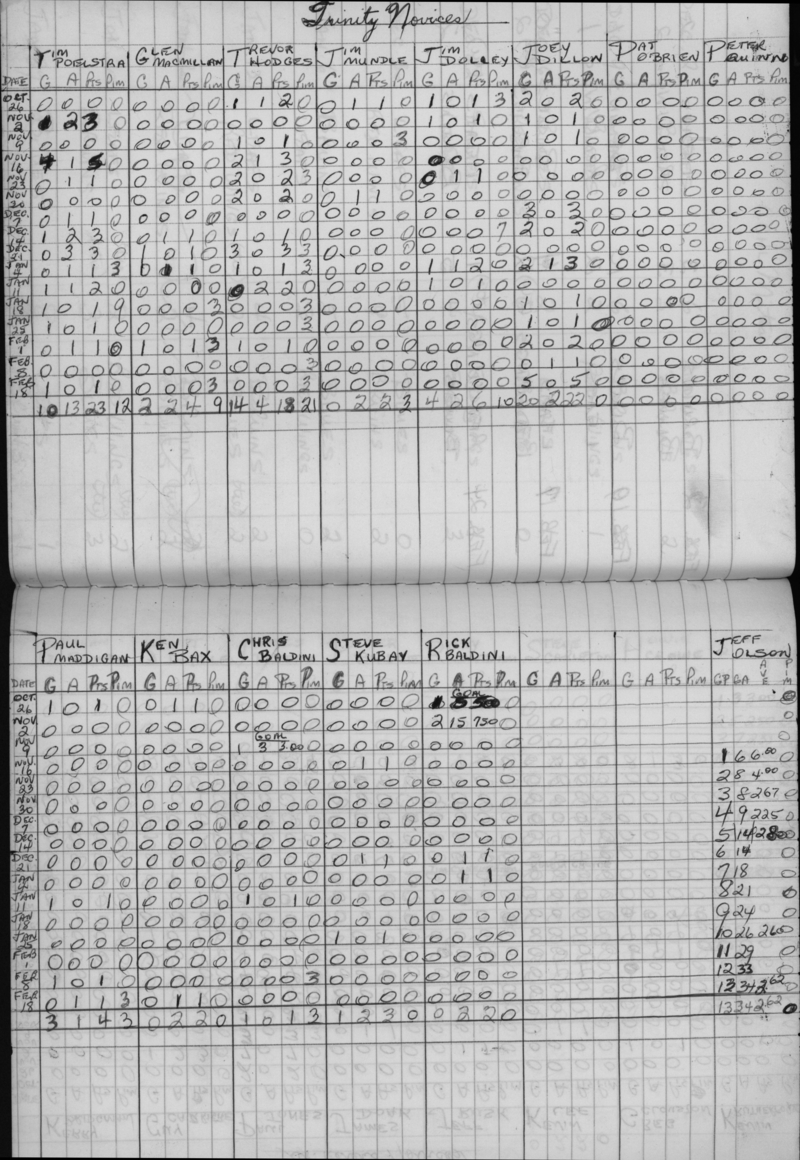 Trinity Novices
TIM POELSTRA GLEN MACMILLAN TREVOR HODGES JIM MUNDLE JIM DOLLEY JOEY DILLON PAT O'BRIEN PETER QUINN
DATE G A Pts Pim G A Pts Pim G A Pts Pim G A Pts Pim G A Pts Pim G A Pts Pim G A Pts Pim G A Pts Pim
OCT. 26 0 0 0 0 0 0 0 0 1 1 2 0 0 1 1 0 1 0 1 3 2 0 2 0 0 0 0 0 0 0 0 0
NOV 2 1 2 3 0 0 0 0 0 0 0 0 0 0 0 0 0 1 0 1 0 1 0 1 0 0 0 0 0 0 0 0 0
NOV 9 0 0 0 0 0 0 0 0 1 0 1 0 0 0 0 3 0 0 0 0 1 0 1 0 0 0 0 0 0 0 0 0
NOV 16 4 1 5 0 0 0 0 0 2 1 3 0 0 0 0 0 0 0 0 0 0 0 0 0 0 0 0 0 0 0 0 0
NOV 23 0 1 1 0 0 0 0 0 2 0 2 3 0 0 0 0 0 1 1 0 0 0 0 0 0 0 0 0 0 0 0 0
NOV 30 0 0 0 0 0 0 0 0 2 0 2 0 0 1 1 0 0 0 0 0 0 0 0 0 0 0 0 0 0 0 0 0
DEC. 7 0 1 1 0 0 0 0 0 0 0 0 0 0 0 0 0 0 0 0 0 3 0 3 0 0 0 0 0 0 0 0 0
DEC 14 1 2 3 0 0 1 1 0 1 0 1 0 0 0 0 0 0 0 0 7 2 0 2 0 0 0 0 0 0 0 0 0
DEC. 21 0 3 3 0 1 0 1 0 3 0 3 3 0 0 0 0 0 0 0 0 0 0 0 0 0 0 0 0 0 0 0 0
JAN 4 0 1 1 3 0 1 1 0 1 0 1 3 0 0 0 0 1 1 2 0 2 1 3 0 0 0 0 0 0 0 0 0
JAN 11 1 1 2 0 0 0 0 0 0 2 2 0 0 0 0 0 1 0 1 0 0 0 0 0 0 0 0 0 0 0 0 0
JAN 18 1 0 1 9 0 0 0 3 0 0 0 3 0 0 0 0 0 0 0 0 1 0 1 0 0 0 0 0 0 0 0 0
JAN 25 1 0 1 0 0 0 0 0 0 0 0 3 0 0 0 0 0 0 0 0 1 0 1 0 0 0 0 0 0 0 0 0
FEB 1 0 1 1 0 1 0 1 3 1 0 1 0 0 0 0 0 0 0 0 0 2 0 2 0 0 0 0 0 0 0 0 0
FEB. 8 0 0 0 0 0 0 0 0 0 0 0 3 0 0 0 0 0 0 0 0 0 1 1 0 0 0 0 0 0 0 0 0
FEB 18 1 0 1 0 0 0 0 3 0 0 0 3 0 0 0 0 0 0 0 0 5 0 5 0 0 0 0 0 0 0 0 0
10 13 23 12 2 2 4 9 14 4 18 21 0 2 2 3 4 2 6 10 20 2 22 0 0 0 0 0 0 0 0 0
PAUL MADDIGAN KEN BAX CHRIS BALDINI STEVE KUBAY RICK BALDINI JEFF OLSON
DATE G A Pts Pim G A Pts Pim G A Pts Pim G A Pts Pim G A Pts Pim G A Pts Pim G A Pts Pim GP GA AVE PIM
OCT. 26 1 0 1 0 0 1 1 0 0 0 0 0 0 0 0 0 1 GOAL 0 0
NOV. 2 0 0 0 0 0 0 0 0 0 0 0 0 0 0 0 0 2 15 7.50 0 0
NOV 9 0 0 0 0 0 0 0 0 1 GOAL 3 3.00 0 0 0 0 0 0 0 0 0 0
NOV. 16 0 0 0 0 0 0 0 0 0 0 0 0 0 1 1 0 0 0 0 0 1 6 6.00 0
NOV 23 0 0 0 0 0 0 0 0 0 0 0 0 0 0 0 0 0 0 0 0 2 8 4.00 0
NOV 30 0 0 0 0 0 0 0 0 0 0 0 0 0 0 0 0 0 0 0 0 3 8 267 0
DEC. 7 0 0 0 0 0 0 0 0 0 0 0 0 0 0 0 0 0 0 0 0 4 9 225 0
DEC. 14 0 0 0 0 0 0 0 0 0 0 0 0 0 0 0 0 0 0 0 0 5 14 280 0
DEC. 21 0 0 0 0 0 0 0 0 0 0 0 0 0 1 1 0 0 1 1 0 6 14 0
JAN 4 0 0 0 0 0 0 0 0 0 0 0 0 0 0 0 0 0 1 1 0 7 18 0
JAN 11 1 0 1 0 0 0 0 0 1 0 1 0 0 0 0 0 0 0 0 0 8 21 0
JAN 18 0 0 0 0 0 0 0 0 0 0 0 0 0 0 0 0 0 0 0 0 9 24 0
JAN 25 0 0 0 0 0 0 0 0 0 0 0 0 1 0 1 0 0 0 0 0 10 26 260 0
FEB 1 0 0 0 0 0 0 0 0 0 0 0 0 0 0 0 0 0 0 0 0 11 29 0
FEB 8 1 0 1 0 0 0 0 0 0 0 0 3 0 0 0 0 0 0 0 0 12 33 0
FEB 18 0 1 1 3 0 1 1 0 0 0 0 0 0 0 0 0 0 0 0 0 13 34 2.62 0
3 1 4 3 0 2 2 0 1 0 1 3 1 2 3 0 0 2 2 0 13 34 2.62 0